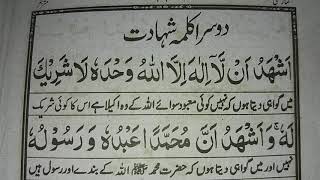 دوسرا کلمہ شہادت
اَشْهَدُ اَنْ لَّآ اِلٰهَ اِلَّا اللهُ وَحْدَهٗ لَا شَرِيْكَ
میں گواہی دیتا ہوں کہ نہیں کوئی معبود سوائے اللہ کے وہ اکیلا ہے اس کا کوئی شریک
لَهٗ وَاَشْهَدُ اَنَّ مُحَمَّدًا عَبْدُهٗ وَرَسُوْلُهٗ
نہیں اور میں گواہی دیتا ہوں کہ حضرت محمد ﷺ اللہ کے بندے اور رسول ہیں